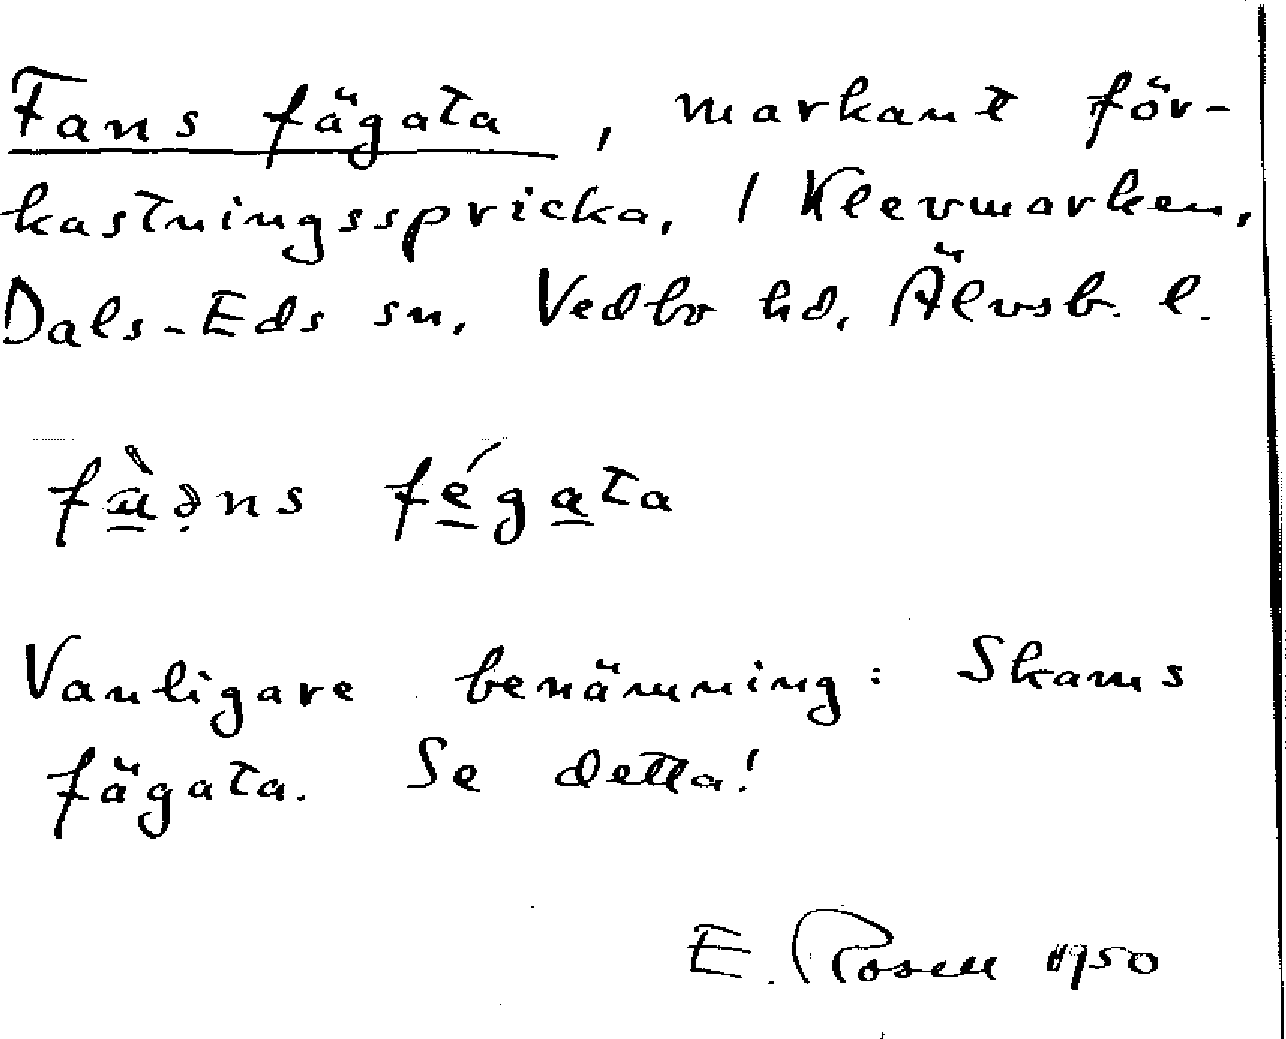 Fans fägata, markant för-
kastningsspricka, / Klevmarken,
Dals-Eds sn, Vedbo hd, Älvsb. l.
fégata
Vanligare benämning: Skams
fägata. Se detta!
E. Rosell 1950